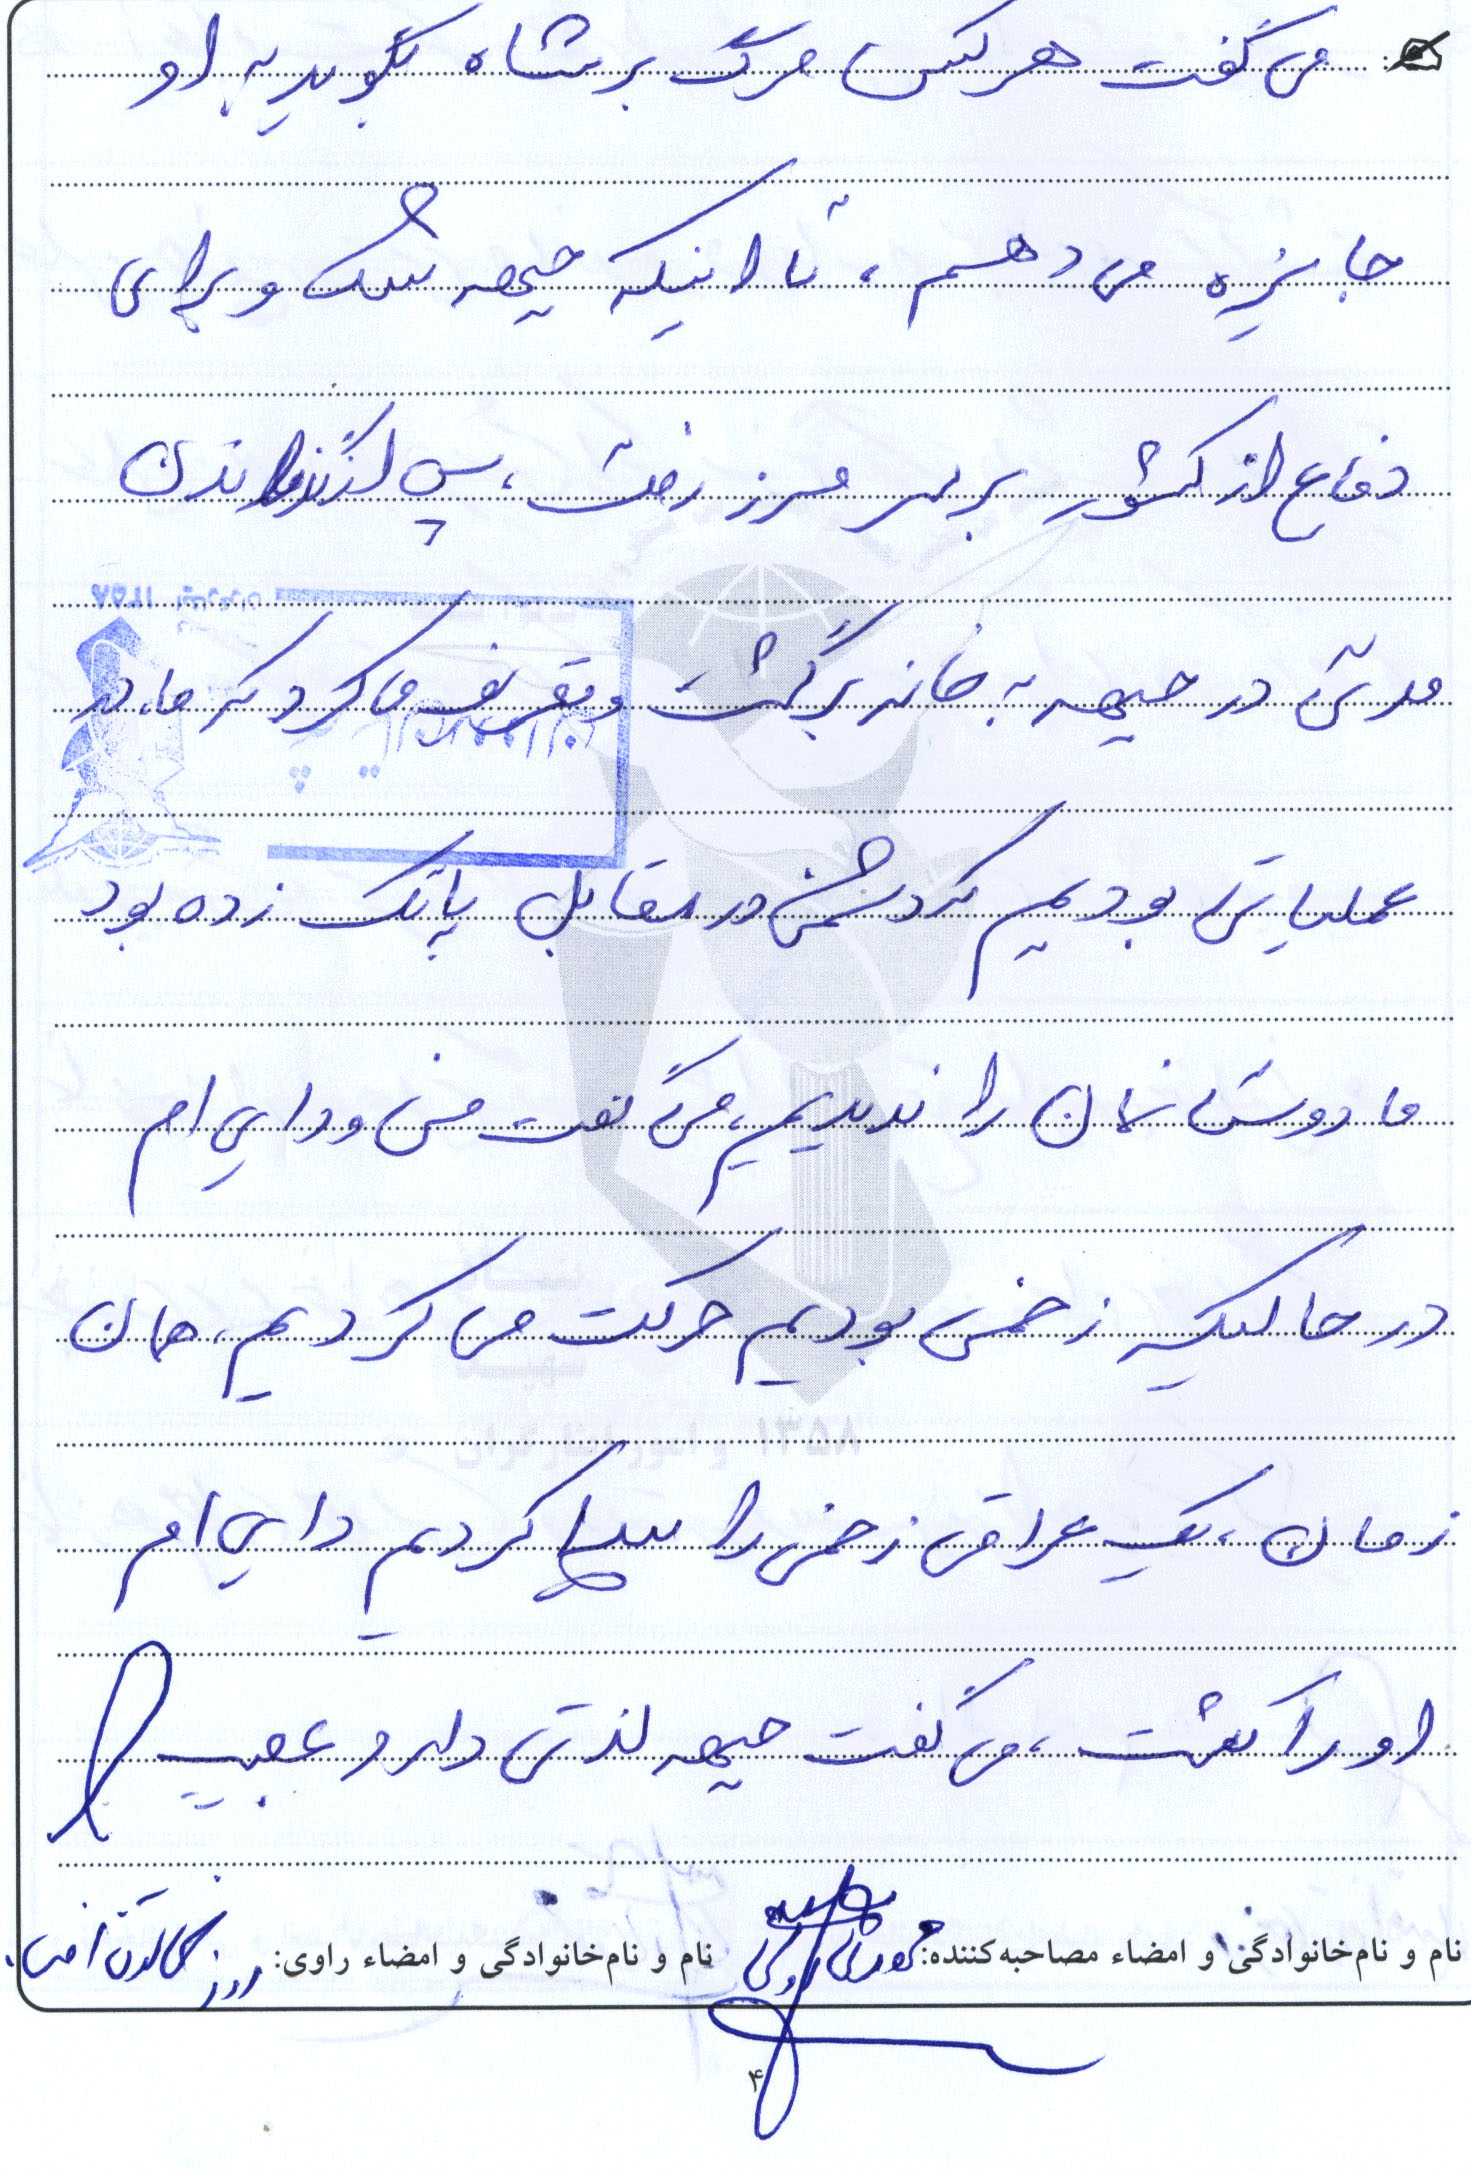 می گفت هر کس مرگ بر شاه بگوید به او
جایزه می دهم، تا اینکه جبهه شد و برای
دفاع از کشور بر سر مرز رفت، پس از گذراندن
مدتی در جبهه به خانه برگشت و تعریف می کرد که ما، در
عملیاتی بودیم که دشمن در مقابل پاتک زده بود
ما دوستانمان را ندیدیم، می گفت من و دایی ام
در حالیکه زخمی بودیم حرکت می کردیم، همان
زمان، یک عراقی زخمی را پیدا کردیم دایی ام
او را کشت، می گفت جبهه لذتی دارد عجیب
نام و نام‌خانوادگی و امضاء مصاحبه‌کننده:
نام و نام‌خانوادگی و امضاء راوی:
۴